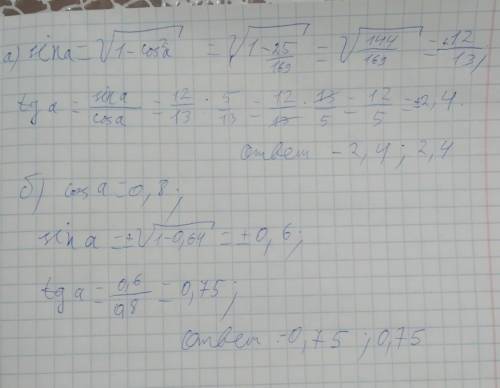 а) sin a = √(1 - cos²a) = √(1 - 25/169) = √(144/169) = ±12/13,
tg a = sin a/cos a = 12/13 : 5/13 = 12/13 · 13/5 = 12/5 = ±2,4.
ответ -2,4; 2,4
б) cos a = 0,8;
sin a = ±√(1-0,64) = ±0,6;
tg a = 0,6/0,8 = 0,75;
ответ -0,75; 0,75